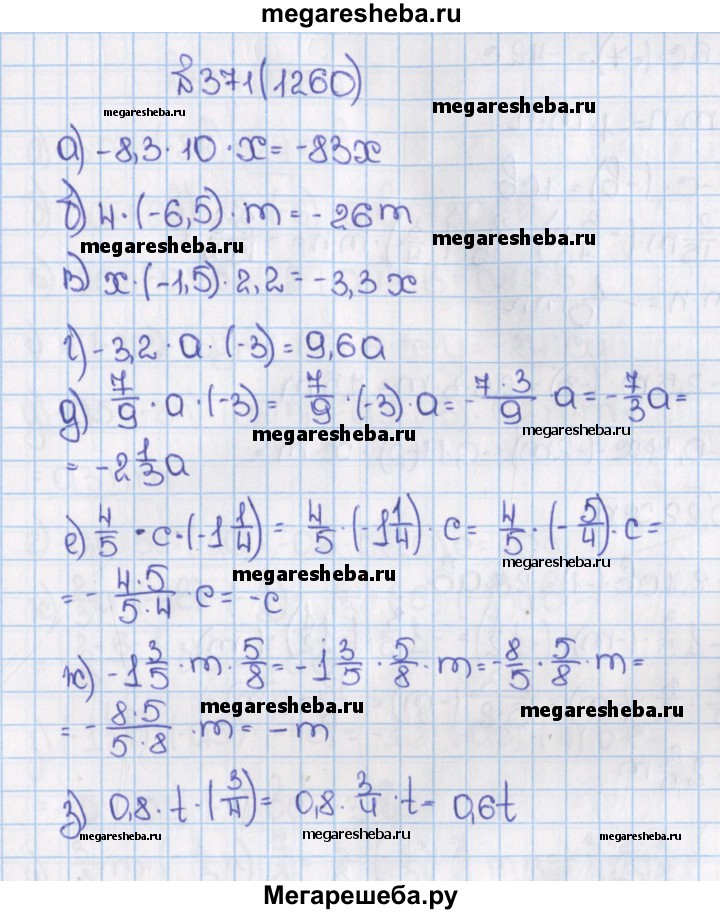 megaresheba.ru
№371(1260)
megaresheba.ru megaresheba.ru
а) -8,3 · 10 · x = -83x
б) 4 · (-6,5) · m = -26m
megaresheba.ru megaresheba.ru
в) x · (-1,5) · 2,2 = -3,3x
г) -3,2 · a · (-3) = 9,6a
д) 7/9 · a · (-3) = 7/9 · (-3) · a = - 7·3/9 · a = - 7/3 a =
megaresheba.ru megaresheba.ru
= -2 1/3 a
е) 4/5 · c · (-1 1/4) = 4/5 · (-1 1/4) · c = 4/5 · (- 5/4) · c =
megaresheba.ru megaresheba.ru
= - 4·5/5·4 · c = -c
ж) -1 3/5 · m · 5/8 = -1 3/5 · 5/8 · m = - 8/5 · 5/8 · m =
megaresheba.ru megaresheba.ru
= - 8·5/5·8 · m = -m
з) 0,8 · t · (3/4) = 0,8 · 3/4 · t = 0,6t
megaresheba.ru megaresheba.ru megaresheba.ru
Мегарешеба.ру